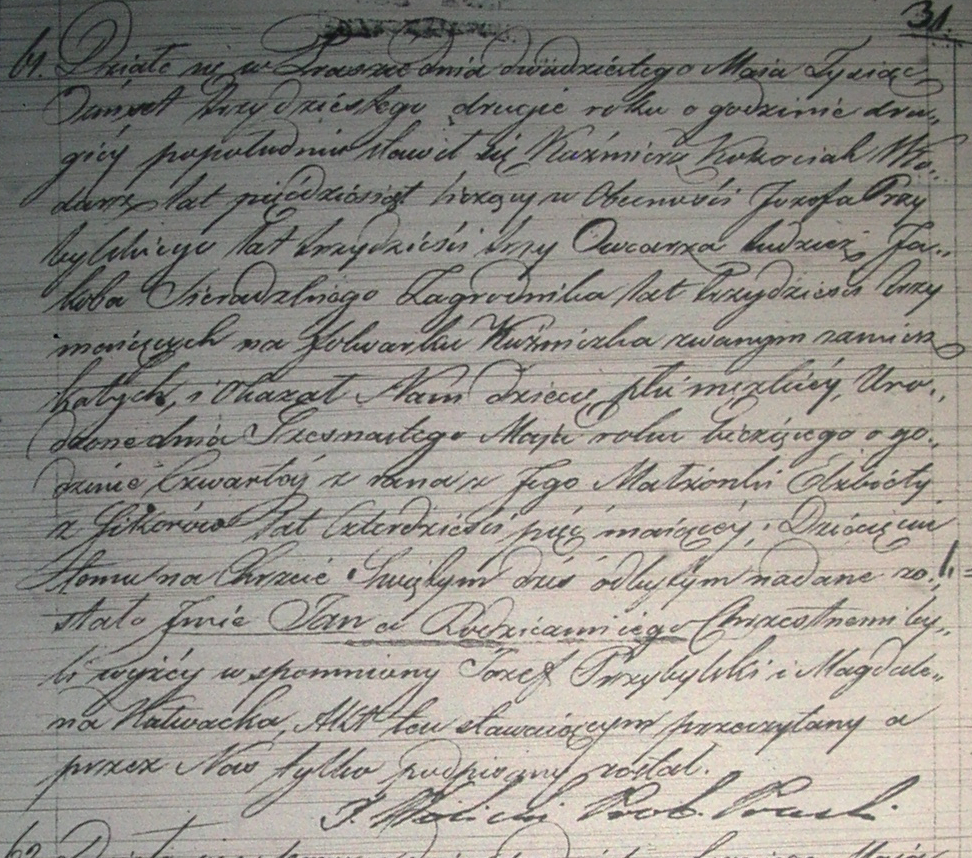 31.
61. Działo się w Praszce dnia dwudziestego Maja Tysiąc
Ośmset trzydziestego drugie roku o godzinie dru„
giéy popołudniu stawił się Kaźmierz Kokociak Wło„
darz lat pięćdziesiąt liczący w Obecności Jozefa Przy
bylskiego lat trzydzieści trzy Owczarza tudzież Ja„
koba Sieradzkiego Zagrodnika lat trzydzieści trzy
maiących na folwarku Kuźniczka zwanym zamiesz
kałych, i Okazał Nam dziecię płci męzkiéy, Uro„
dzone dnia Szesnastego Maja roku bieżącego o go„
dzinie Czwartéy z rana z Jego Małżonki Elżbiéty
z lat Czterdzieści pięć maiącéy; Dziécięciu
temu na Chrzcie Swiętym dziś odbytym nadane zo„
stało Jmie Jan a Rodzicami iego Chrzestnemi by„
li wyżéy wspomniony Józef Przybylski i Magdale„
na Akt ten stawaiącym przeczytany a
przez Nas tylko podpisany został.
Prob. Prasz:
62.